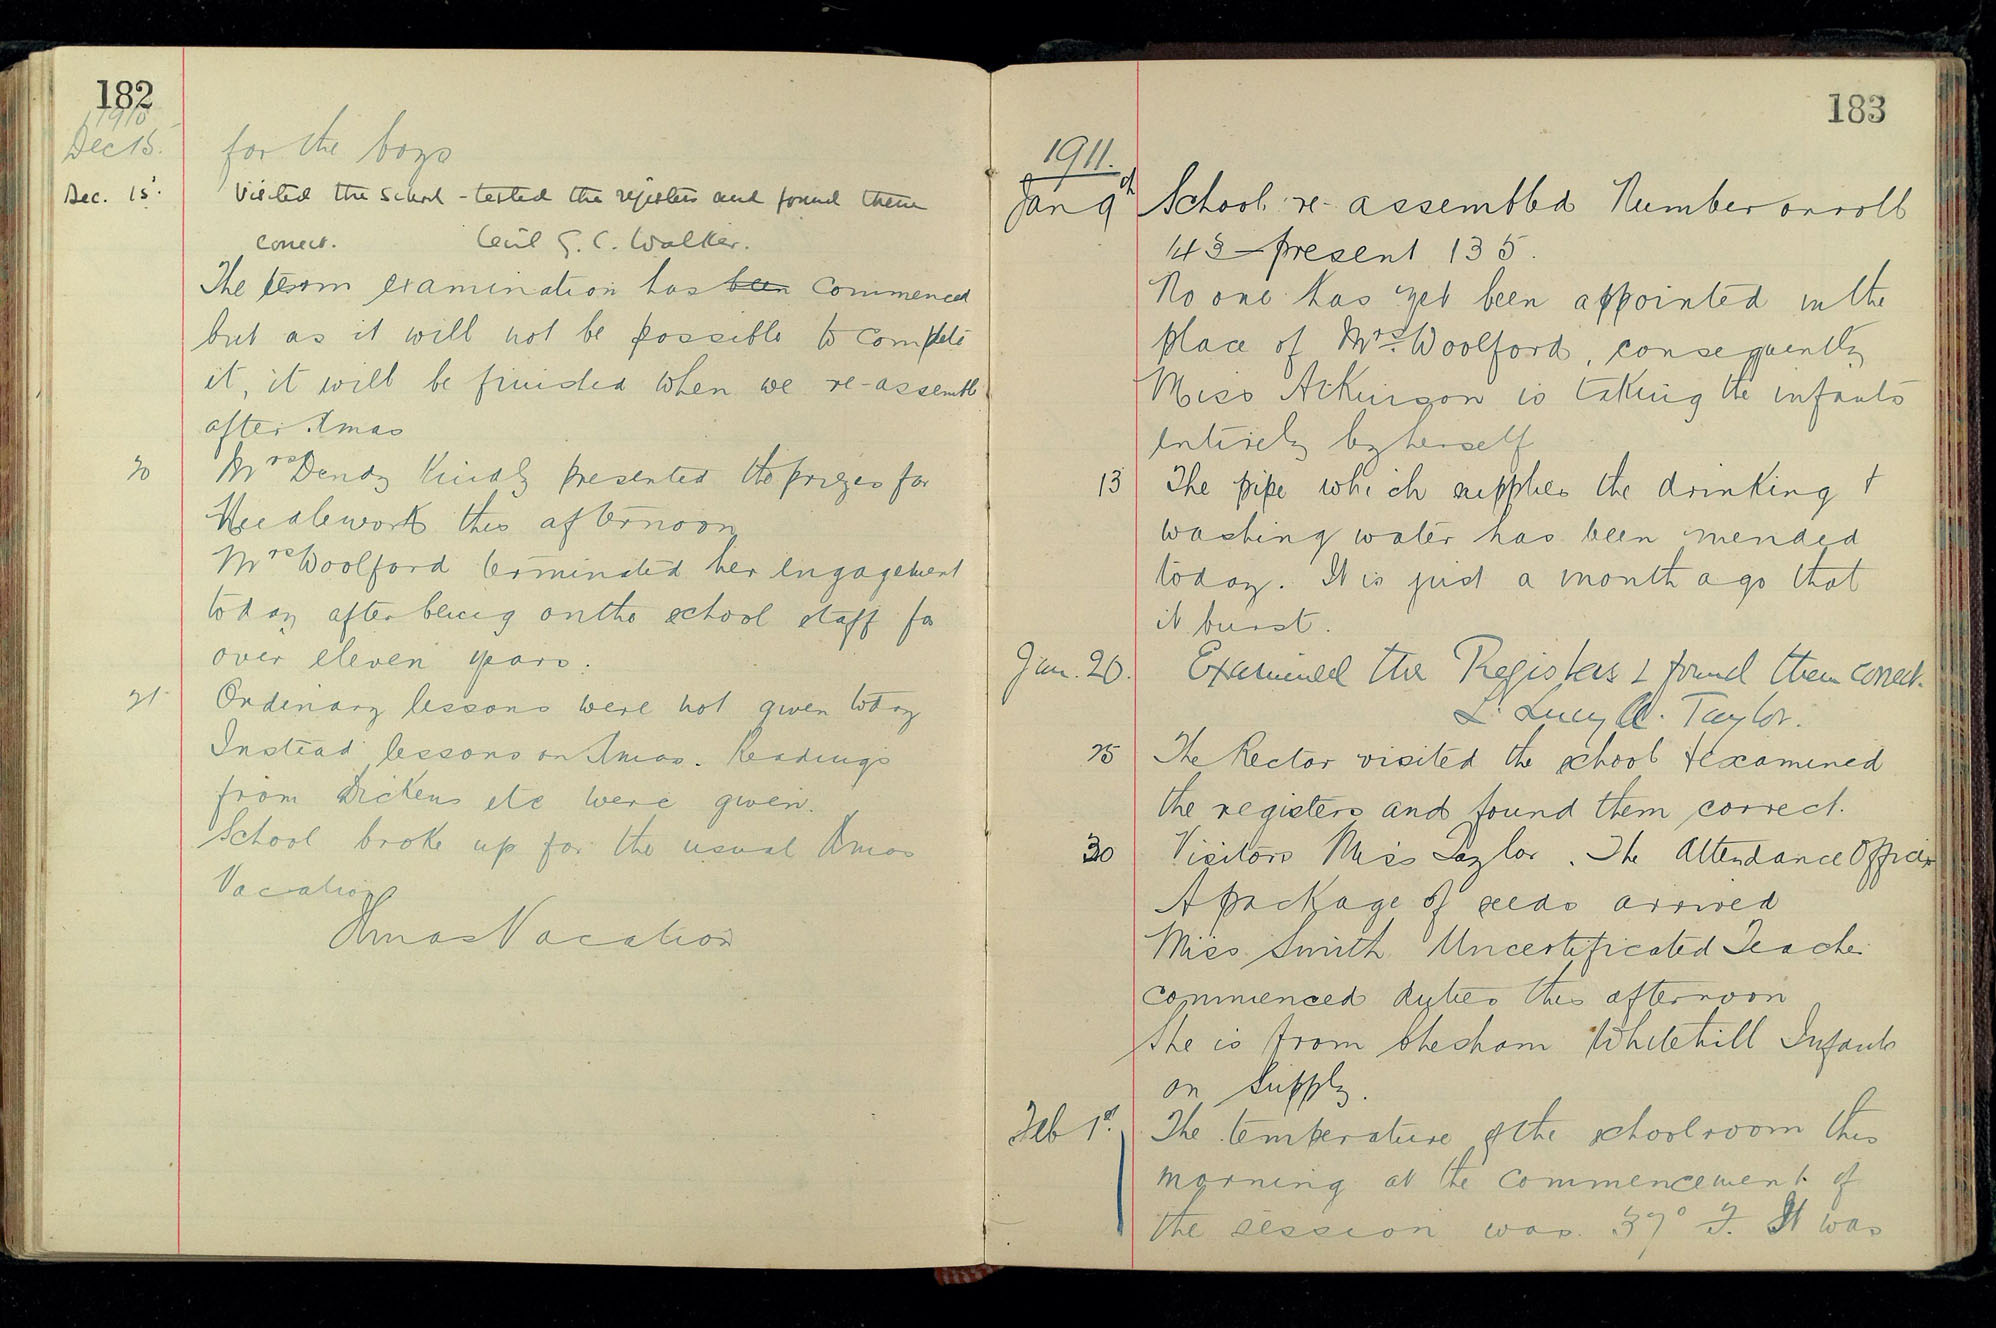 182
1910
Dec 15.
for the boys
Dec. 15. Visited the School - tested the registers and found them
correct. Cecil G. C. Walker.
The term examination has been commenced
but as it will not be possible to complete
it, it will be finished when we re-assemble
after Xmas
20 Mrs Dendy kindly presented the prizes for
Needlework this afternoon
Mrs Woolford terminated her engagement
today after being on the school staff for
over eleven years.
21 Ordinary lessons were not given today
Instead lessons on Xmas. Readings
from Dickens etc were given.
School broke up for the usual Xmas
Vacation
Xmas Vacation
183
1911.
Jan 9th School re-assembled Number on roll
143 – present 135.
No one has yet been appointed in the
place of Mrs. Woolford, consequently
Miss Atkinson is taking the infants
entirely by herself
13 The pipe which supplies the drinking +
washing water has been mended
today. It is just a month ago that
it burst.
Jan. 20. Examined the Registers & found them correct.
L. Lucy A. Taylor.
25 The Rector visited the school + examined
the registers and found them correct.
30 Visitors Miss Taylor. The Attendance Officer
A package of seeds arrived
Miss Smith Uncertificated Teacher
commenced duties this afternoon
She is from Chesham Whitehill Infants
on Supply.
Feb 1st. The temperature of the schoolroom this
morning at the commencement of
the session was 37° F. It was